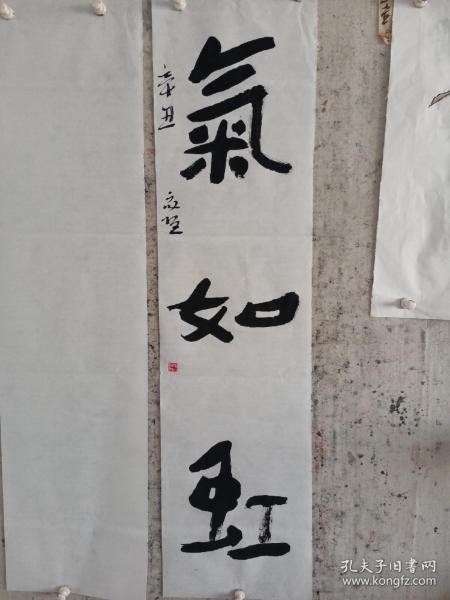 氣如虹
辛丑
孔夫子旧书网
www.kongfz.com